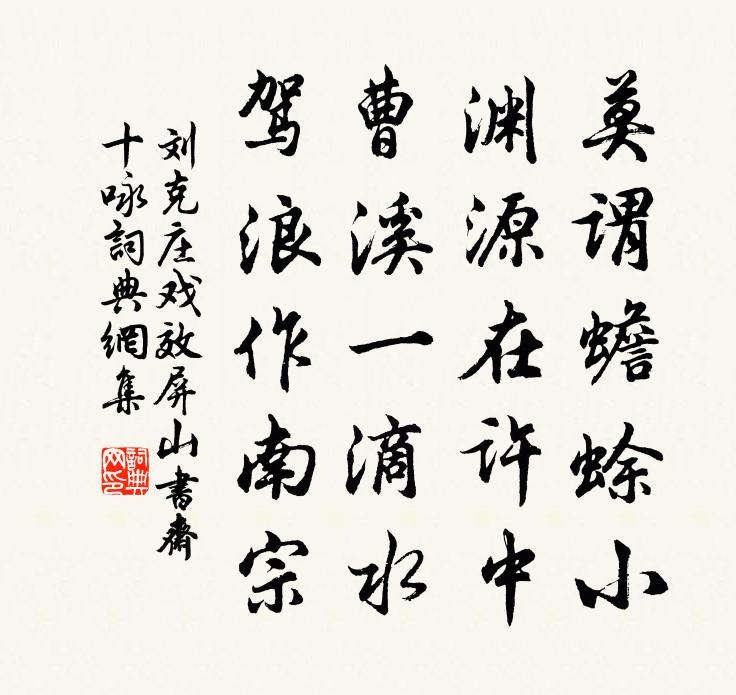 莫谓蟾蜍小
渊源在许中
曹溪一滴水
驾浪作南宗
刘克庄戏效屏山书斋
十咏詞典網集
詞典
网印